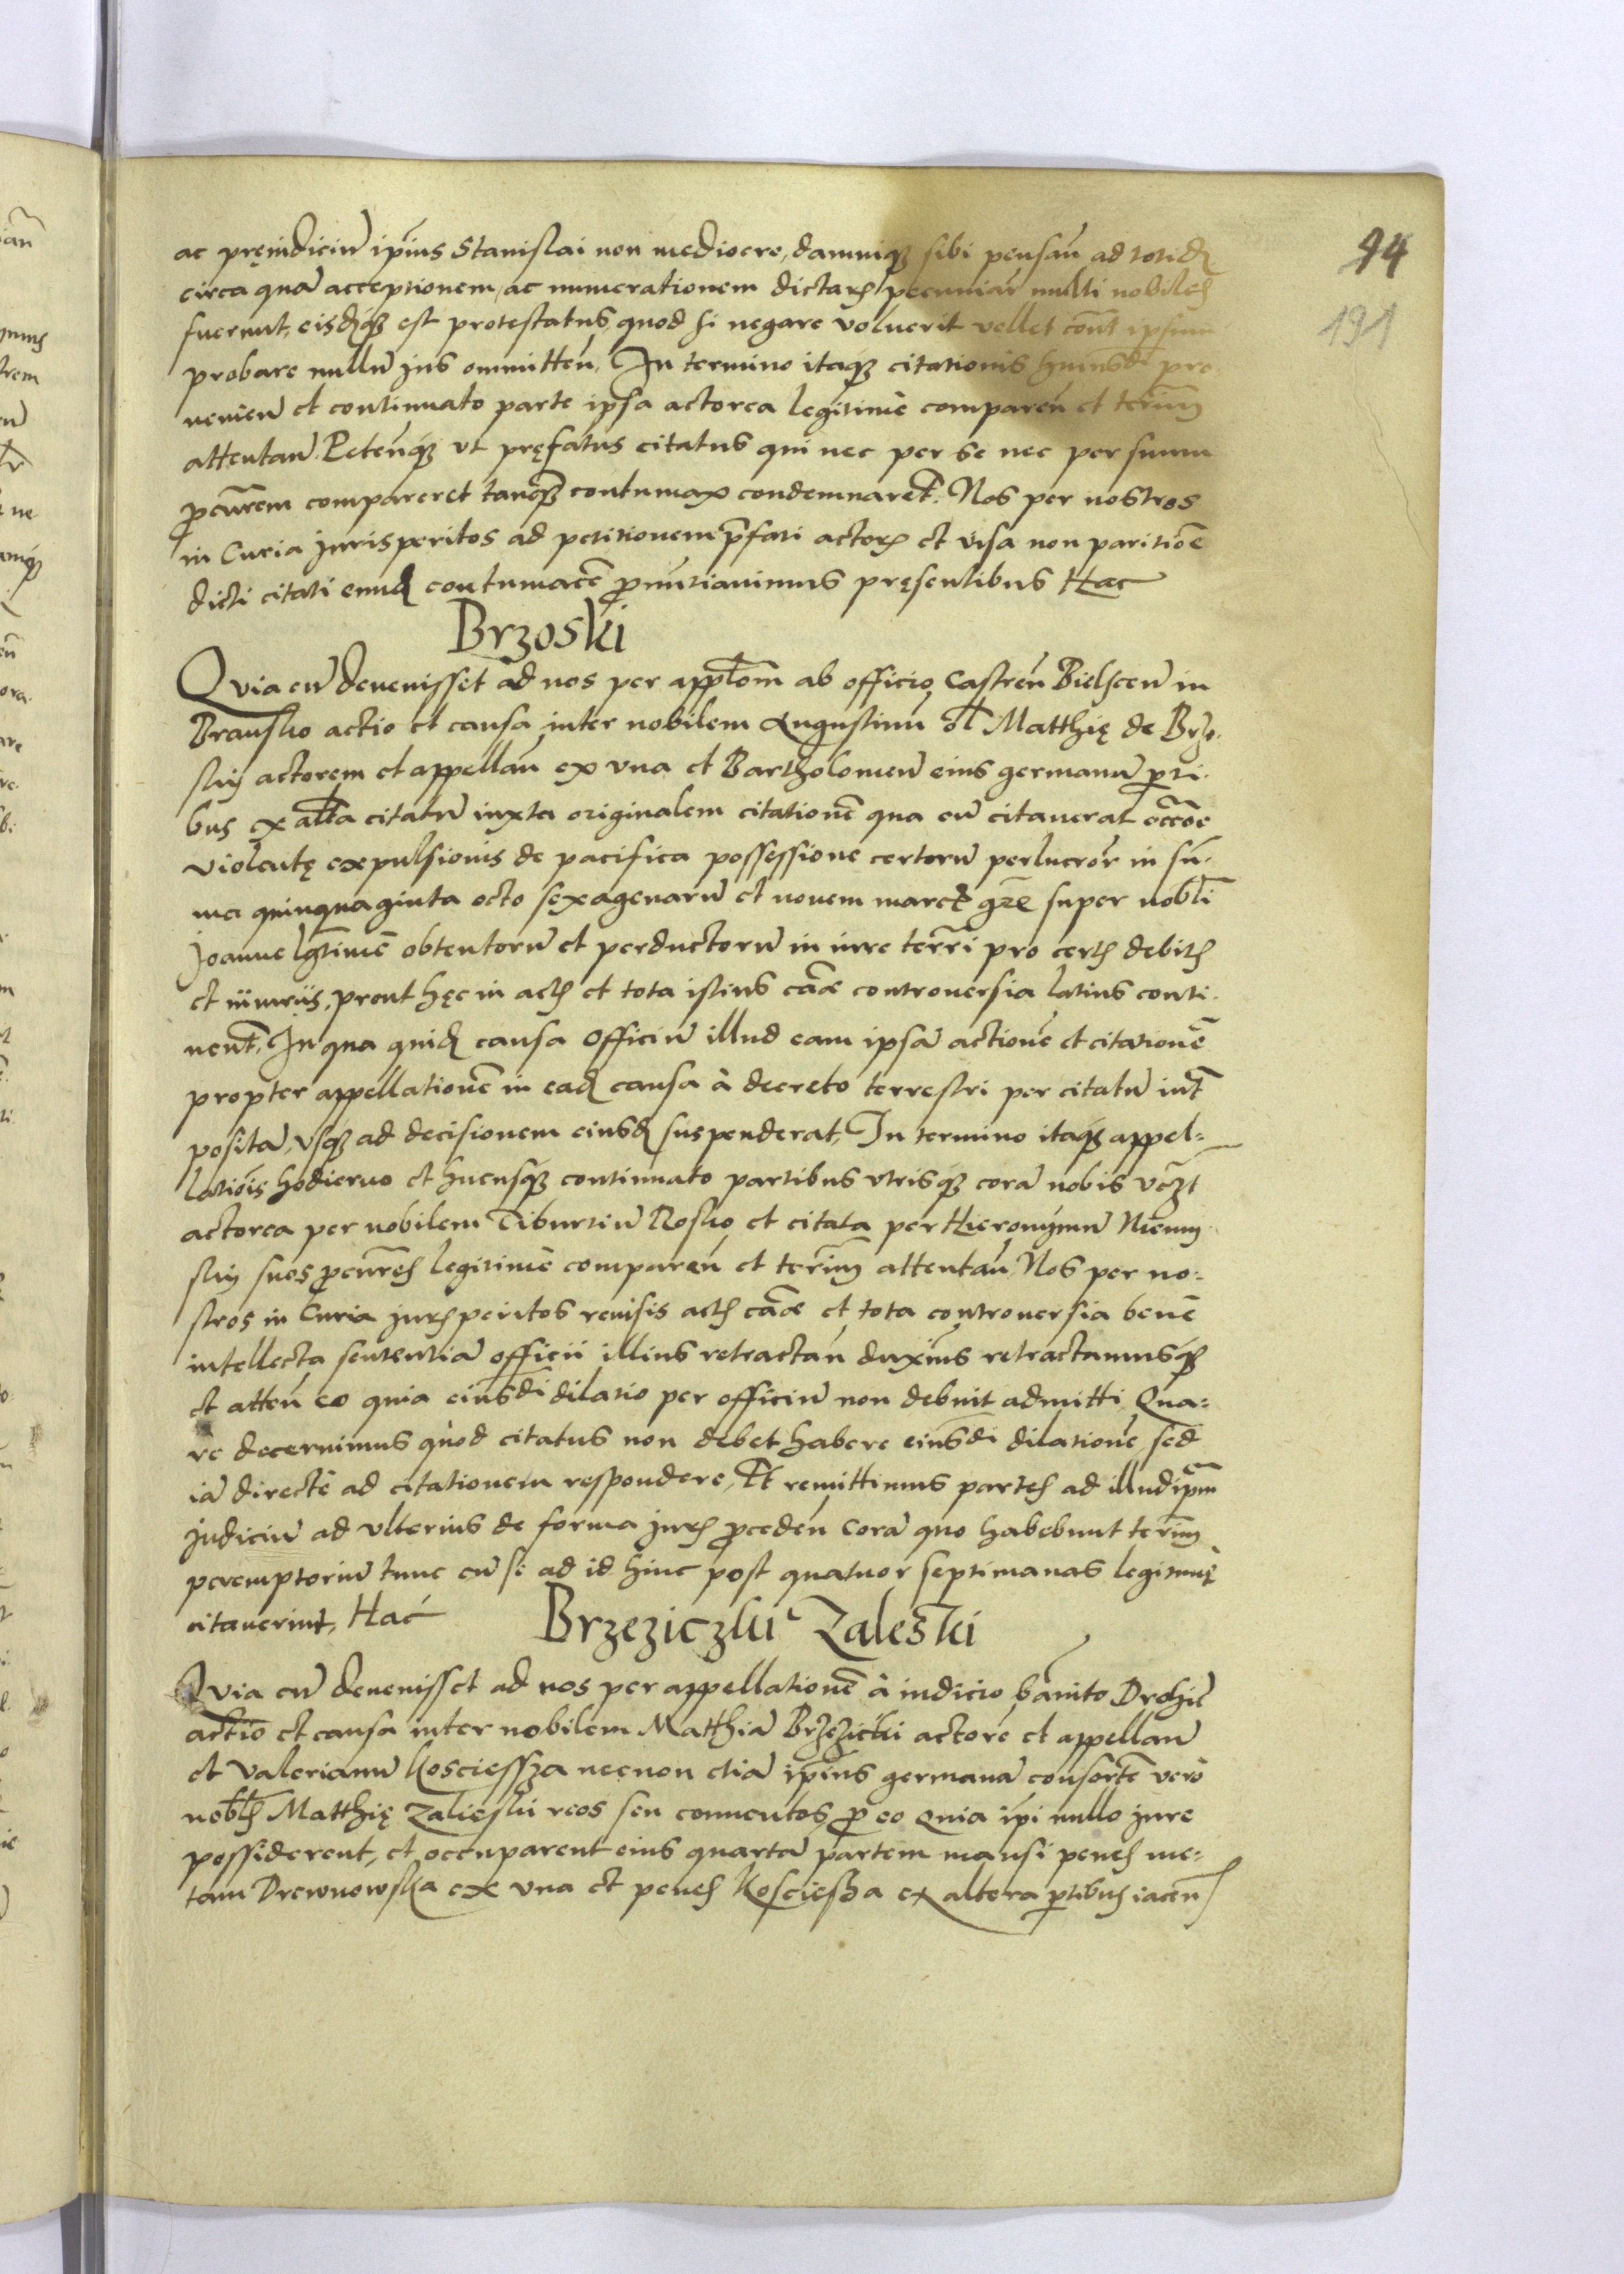 94
191
ac pręiudiciū ip̄ius Stanislai non mediocre, damniq₃ sibi pensan̄ ad totid₃
circa quā acceptionem, ac numerationem dictarꝝ pecuniar̄ multi nobiles
fuerunt, eisdq₃ est protestatus, quod si negare voluerit vellet cont̄ ipsum
probare nullū jus ommitten̄, In termino itaq₃ citationis huiusdī pro
venien̄ et continuato parte ipsa actorea legitimè comparen̄ et term̄
attentan̄. Peten̄q₃ vt pręfatus citatus qui nec per se nec per suum
ꝓcurēm compareret tanq₃ contumax condemnaret̄. Nos per nostros
in Curia jurisperitos ad petitionem p̄fati actorꝭ et visa non paritiōe
dicti citati eund₃ contumacē ꝓnūtiauimus pręsentibus Hac
Brzoski
Quia cū deuenisset ad nos per appl̄om ab officio Castren̄ Bielscen̄ in
Bransko actio et causa inter nobilem Augustinū ol̄ Matthię de Brzo-
skij actorem et appellan̄ ex vna et Bartholomeū eius germanū ꝑti-
bus ex alt̄a citatū iuxta originalem citationē qua eū citauerat occōe
violentę expulsionis de pacifica possessione certorū perlucror̄ in sū-
ma quinquaginta octo sexagenarū et nouem marcꝭ grē super nobl̄i
Joanne lgtimē obtentorū et perductorū in iure terr̄i pro certꝭ debitꝭ
et iniuriis, prout hęc in actꝭ et tota istius cāae controuersia latius conti-
nent̄, In qua quid₃ causa Officiū illud eam ipsā actionē et citationē
propter appellationē in ead₃ causa à decreto terrestri per citatū int̄
positā, vsq₃ ad decisionem eiusd₃ suspenderat, In termino itaq₃ appel=
latiōis hodierno et hucusq₃ continuato partibus vtrisq₃ corā nobis vcꝫt
actorea per nobilem Tiburtiū Rosko et citata per Hieronymū Niemy-
skij suos ꝓcurēs legitimē comparen̄ et term̄ attentan̄, Nos per no=
stros in Curia jurꝭperitos reuisis actꝭ cāae et tota controuersia benē
intellecta sententiā officii illius retractan̄ duxim̄s retractamusq₃
et atten̄ eo quia eiusdī dilatio per officiū non debuit admitti, Qua=
re decernimus quòd citatus non debet habere eiusdī dilationē, sed
iā directè ad citationem respondere, Et remittimus partes ad illud ip̄m
Judiciū ad vlterius de forma jurꝭ ꝓceden̄ Corā quo habebunt term̄
peremptoriū tunc cū si ad id hinc post quatuor septimanas legitimè
citauerint, Hac̄
Brzeziczki Zaleski
Quia cū deuenisset ad nos per appellationē à iudicio bānito Drohic̄
actio et causa inter nobilem Matthiā Brzezicki actorē et appellan̄
et Valerianū Kosciessza necnon etiā ip̄ius germanā consortē verò
noblꝭ Matthię Zalieski reos seu conuentos, ꝓ eo quia ip̄i nullo jure
possiderent, et occuparent eius quartā partem mansi penes me=
tam Drewnowska ex vna et penes Koscießa ex altera ꝑtibus iacen̄